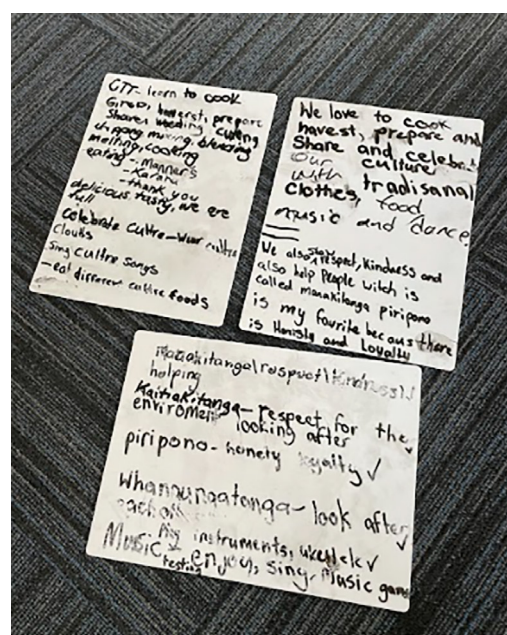 GTT- learn to cook
Grow, havest, prepare
Share, weeding, cutting
chopping mixing, blending
melting, cooking
eating - manners
- Karakia
- thank you
delicious tasty, we are
full
celebrate cultre - Wear cultre
Clouths
sing cultre songs
- eat different cultre foods
We love to cook
havest, prepare and
Share and celebrate
our culture
with tradisanal
clothes, food
music and dance
We also respect, Kindness and
also help People witch is
called manakitanga piripono
is my fourite becaus there
is Honisty and Loyalty
manakitanga respect Kindness
helping
Kaitiakitanga - respect for the
enviroment looking after
piripono - honety loyalty ✓
whanungatanga - look after
eachother
Play instruments, ukelele ✓
Music - enjoy, sing, music game